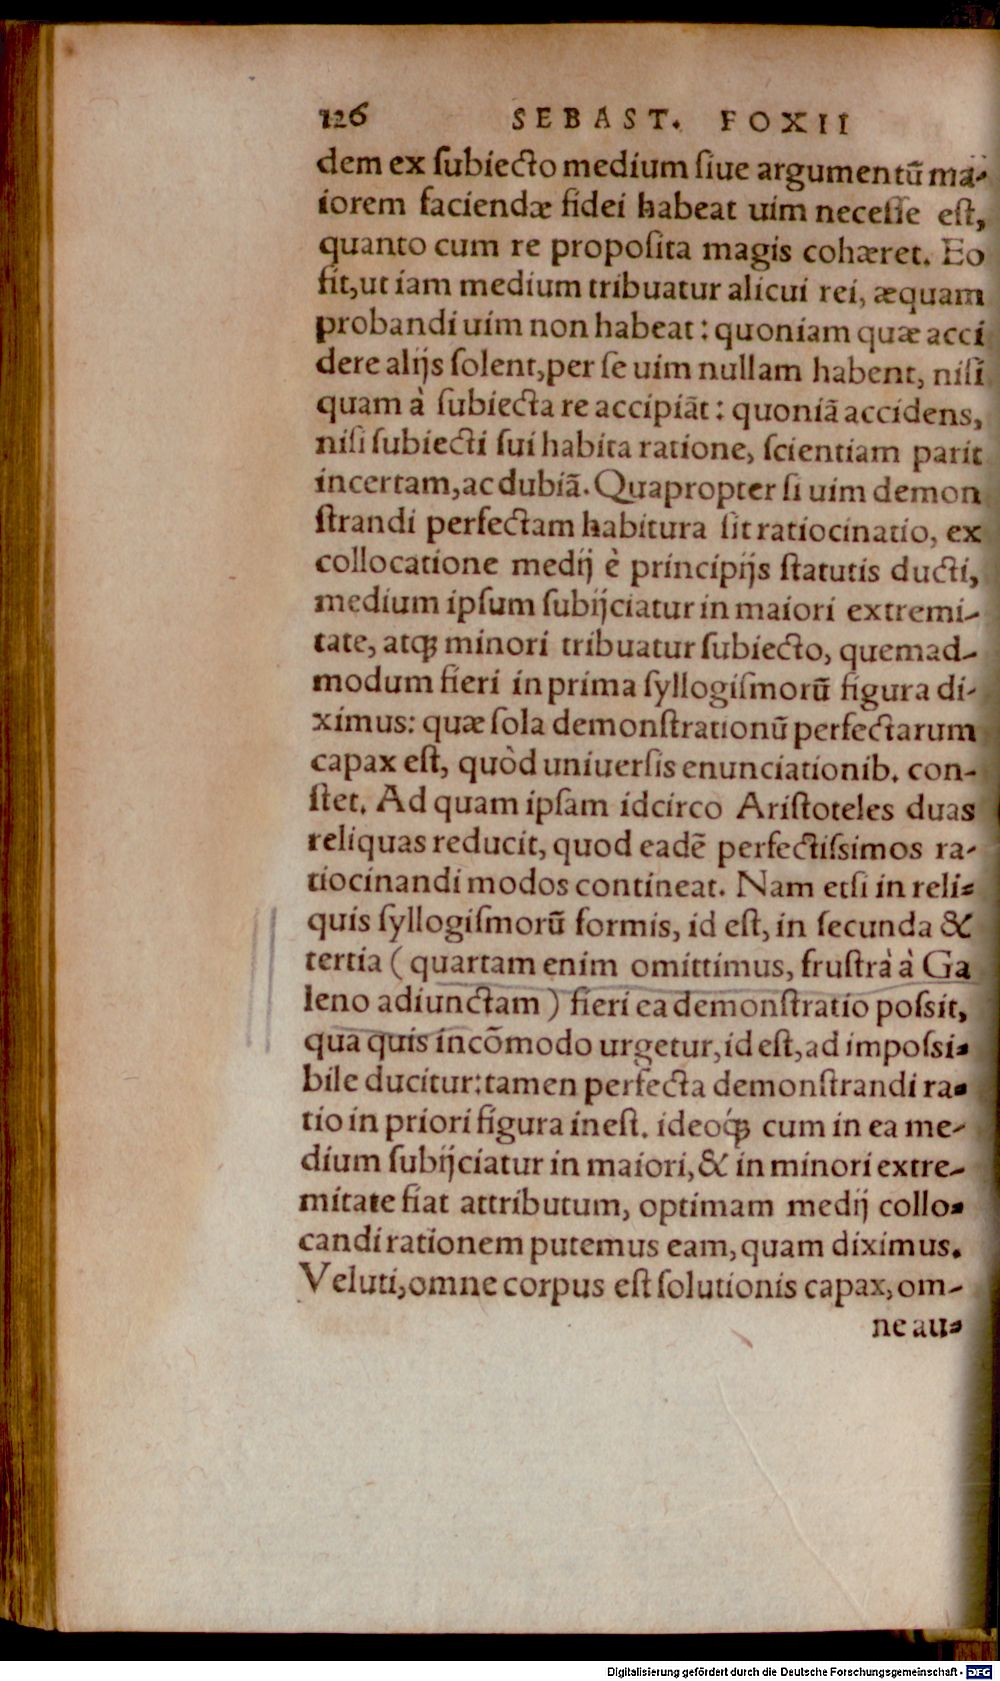 126 SEBAST. FOXII
dem ex ſubiecto medium ſiue argumentũ ma-
iorem faciendæ fidei habeat uim neceſſe eſt,
quanto cum re propoſita magis cohæret. Eo
fit, ut iam medium tribuatur alicui rei, æquam
probandi uim non habeat: quoniam quæ acci
dere alijs ſolent, per ſe uim nullam habent, niſi
quam à ſubiecta re accipiãt: quoniã accidens,
niſi ſubiecti ſui habita ratione, ſcientiam parit
incertam, ac dubiã. Quapropter ſi uim demon
ſtrandi perfectam habitura ſit ratiocinatio, ex
collocatione medij è principijs ſtatutis ducti,
medium ipſum ſubijciatur in maiori extremi-
tate, atq̃ minori tribuatur ſubiecto, quemad-
modum fieri in prima ſyllogiſmorũ figura di-
ximus: quæ ſola demonſtrationũ perfectarum
capax eſt, quòd uniuerſis enunciationib. con-
ſtet. Ad quam ipſam idcirco Ariſtoteles duas
reliquas reducit, quod eadẽ perfectiſsimos ra-
tiocinandi modos contineat. Nam etſi in reli-
quis ſyllogiſmorũ formis, id eſt, in ſecunda &
tertia (quartam enim omittimus, fruſtrà à Ga
leno adiunctam) fieri ea demonſtratio poſsit,
qua quis incõmodo urgetur, id eſt, ad impoſsi-
bile ducitur: tamen perfecta demonſtrandi ra-
tio in priori figura ineſt. ideoq́; cum in ea me-
dium ſubijciatur in maiori, & in minori extre-
mitate fiat attributum, optimam medij collo-
candi rationem putemus eam, quam diximus.
Veluti, omne corpus eſt ſolutionis capax, om-
ne au-
Digitalisierung gefördert durch die Deutsche Forschungsgemeinschaft - DFG